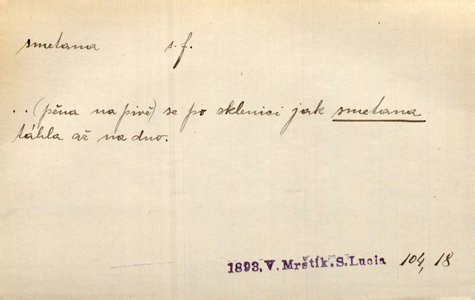 smetana s. f.
.. (pěna na pivě) se po sklenici jak smetana
táhla až na dno.
1893, V. Mrštík. S. Lucia 104, 18